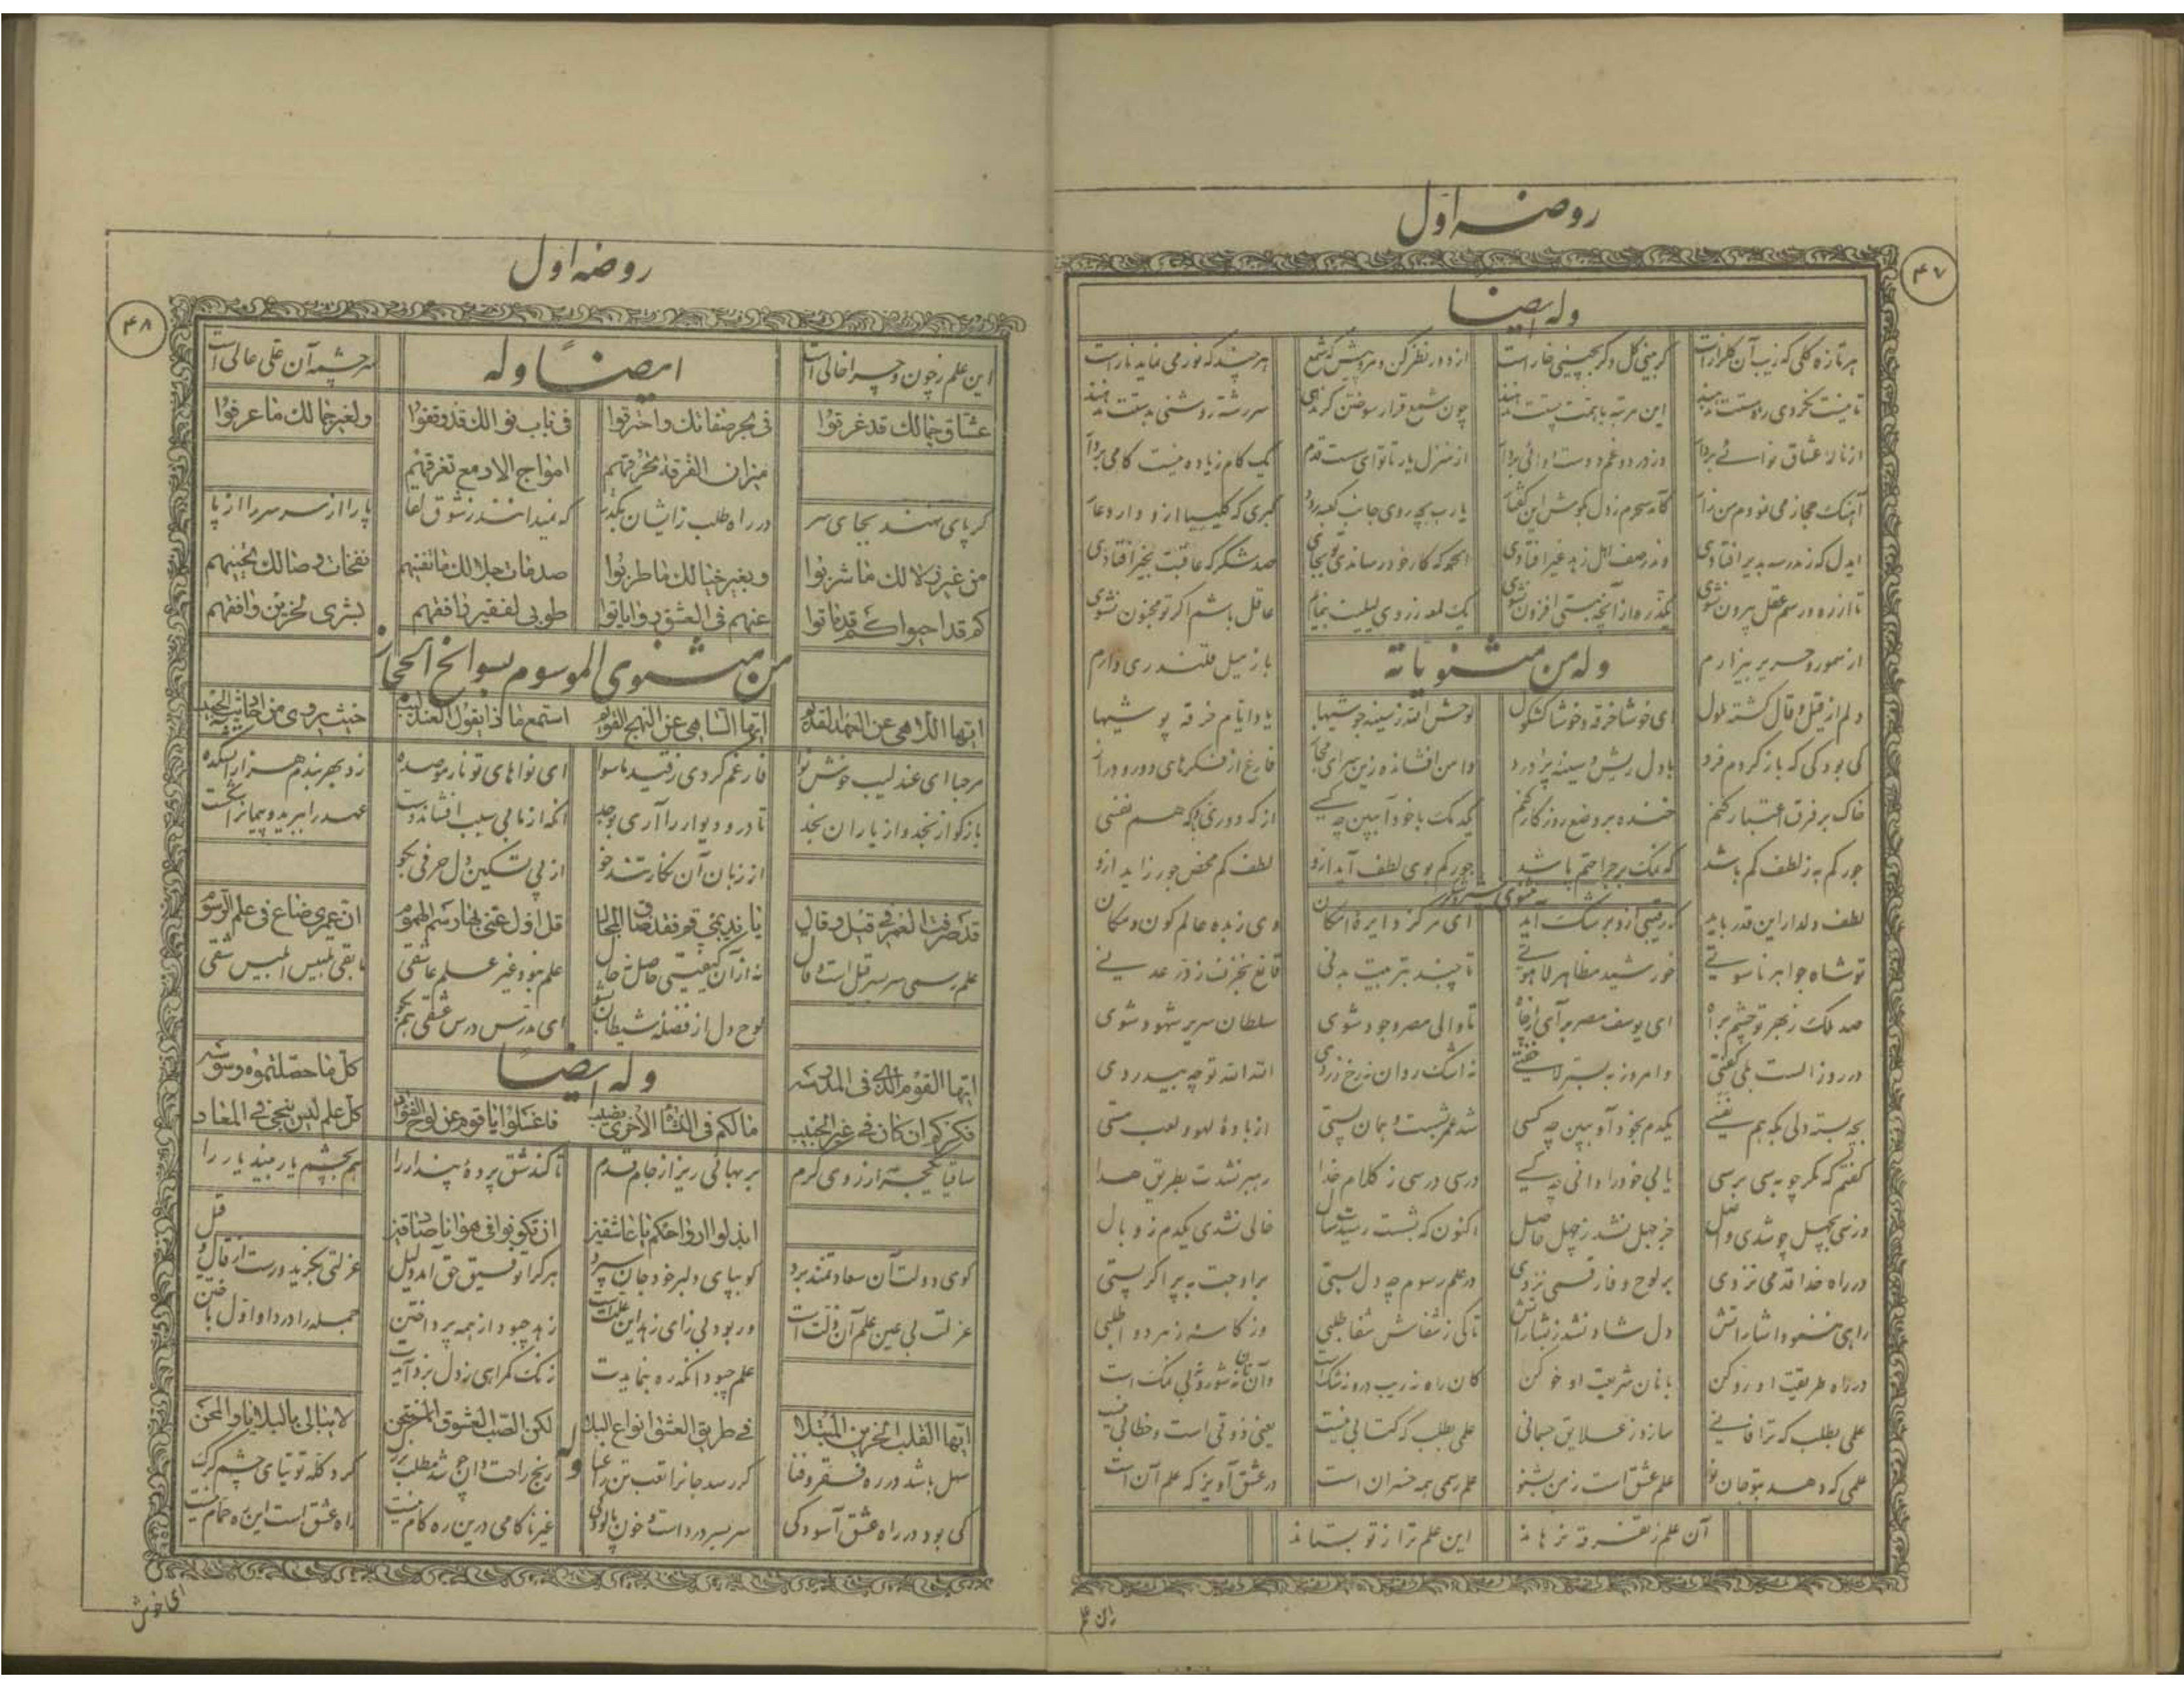 روضه اول
۴۷
وله ایضا
هر تازه گلی که زیب آن گلزار است گر بینی گل و گر بچینی خار است از دور نظر کن و مرو پیش که شمع هر چند که نور می نماید نار است
تا نیست نگردی ره هستت ندهند این مرتبه با همت پستت ندهند چون شمع قرار سوختن گر ندهی سر رشته روشنی بدستت ندهند
از نالهٔ عشاق نوائی بردار وز درد و غم دوست دوائی بردار از منزل یار تا تو ای سست قدم یک گام زیاده نیست گامی بردار
آهنگ حجاز می نمودم من زار کامد سحرم ز دل بگوش این گفتار یارب بچه روی جانب کعبه رود گبری که کلیسیا ازو دارد عار
ایدل که ز مدرسه بدیر افتادی و ندر صف اهل زهد غیر افتادی الحمد که کار خود رساندی تو بجای صد شکر که عاقبت بخیر افتادی
تا از ره و رسم عقل بیرون نشوی یکذره از آنچه هستی افزون نشوی یک لمعه ز روی لیلیت بنمایم عاقل باشم اگر تو مجنون نشوی
وله من مثنویاته
از سمور و حریر بیزارم باز میل قلندری دارم
دلم از قیل و قال گشته ملول ای خوشا خرقه و خوشا کشکول لوحش الله ز سینه جوشیها یاد ایام خرقه پوشیها
کی بود کی که باز گردم فرد با دل ریش و سینه پر درد دامن افشانده زین سرای مجاز فارغ از فکرهای دور و دراز
خاک بر فرق اعتبار کنم خنده بر وضع روزگار کنم یکدمک با خود آ ببین چه کسی از که دوری و با که هم نفسی
جور کم به ز لطف کم باشد که نمک بر جراحتم پاشد جور کم بوی لطف آید ازو لطف کم محض جور زاید ازو
مثنوی شیر و شکر
لطف دلدار این قدر باید که رقیبی ازو برشک آید ای مرکز دایرهٔ امکان وی زبدهٔ عالم کون و مکان
تو شاه جواهر ناسوتی خورشید مظاهر لاهوتی تا چند بتربیت بدنی قانع بخزف ز در عدنی
صد ملک ز بهر تو چشم براه ای یوسف مصر برآی از چاه تا والی مصر وجود شوی سلطان سریر شهود شوی
در روز الست بلی گفتی و امروز به بستر لا خفتی نه اشک روان نه رخ زردی الله الله تو چه بیدردی
بچه بسته دلی بکه هم نفسی یکدم بخود آ و ببین چه کسی شد عمر تو شست و همان پستی از بادهٔ لهو و لعب مستی
گفتم که مگر چو به سی برسی یابی خود را دانی چه کسی درسی درسی ز کلام خدا رهبر نشدت بطریق هدا
وز سی بچهل چو شدی واصل جز جهل نشد ز چهل حاصل اکنون که بشصت رسیدت سال خالی نشدی یکدم ز وبال
در راه خدا قدمی نزدی بر لوح وفا رقمی نزدی در علم رسوم چه دل بستی بر اوجت به پر اگر پستی
راهی ننمود اشاراتش دل شاد نشد ز بشاراتش تا کی ز شفاش شفا طلبی وز کاسهٔ زهر دوا طلبی
در راه طریقت او رو کن با نان شریعت او خو کن کان راه نه ریب درو نه شک است وان نان نه شور و نه بی نمک است
علمی بطلب که ترا فانی سازد ز علایق جسمانی علمی بطلب که کتابی نیست یعنی ذوقی است و خطابی نیست
علمی که دهد بتو جان نو علم عشق است ز من بشنو علم رسمی همه خسران است در عشق آویز که علم آن است
آن علم ز تفرقه برهاند این علم ترا ز تو بستاند
زان علم
روضه اول
۴۸
این علم ز چون و چرا خالی است سرچشمه آن علی عالی است
ایضاً وله
عشاق جمالك قد غرقوا فی بحر صفاتك واحترقوا فی باب نوالك قد وقفوا ولغیر جمالك ما عرفوا
نیران الفرقة تحرقهم امواج الادمع تغرقهم
گر پای نهند بجای سر در راه طلب زایشان بگذر که نمیدانند ز شوق لقا پا را از سر سر را از پا
من غیر زلالك ما شربوا وبغیر خیالك ما طربوا صدمات جلالك تفنیهم نفحات وصالك تحییهم
كم قد احیوا كم قد ماتوا عنهم فی العشق روایات طوبی لفقیر رافقهم بشری لحزین وافقهم
من مثنوی الموسوم بسوانح الحجاز
ایها اللاهی عن العهد القدیم ایها الساهی عن النهج القویم استمع ما ذا یقول العندلیب حیث یروی من احادیث الحبیب
مرحبا ای عندلیب خوش نوا فارغم کردی ز قید ماسوا ای نواهای تو نار موصده زد بهر بندم هزار آتشکده
بازگو از نجد و از یاران نجد تا در و دیوار را آری بوجد آنکه از ما بی سبب افشاند دست عهد را ببرید و پیمان را شکست
از زبان آن نگار تند خو از پی تسکین دل حرفی بگو
قد صرفت العمر فی قیل و قال یا ندیمی قم فقد ضاق المجال قل اول عنی بها رسم الهموم ان عمری ضاع فی علم الرسوم
علم رسمی سر بسر قیل است و قال نه ازان کیفیتی حاصل نه حال علم نبود غیر علم عاشقی ما بقی تلبیس ابلیس شقی
لوح دل از فضلهٔ شیطان بشو ای مدرس درس عشقی هم بگو
وله ایضاً
ایها القوم الذی فی المدرسه كل ما حصلتموه وسوسه
فكركم ان كان فی غیر الحبیب ما لكم فی النشأة الاخری نصیب فاغسلوا یا قوم عن لوح الفؤاد كل علم لیس ینجی فی المعاد
ساقیا یکجرعه از روی کرم بر بهائی ریز از جام قدم تا کند شق پردهٔ پندار را هم بچشم یار بیند یار را
ابذلوا ارواحكم یا عاشقین ان تكونوا فی هوانا صادقین
گوی دولت آن سعادتمند برد کو بپای دلبر خود جان سپرد هر کرا توفیق حق آمد دلیل عزلتی بگزید و رست از قال و قیل
عزلت بی عین علم آن زلت است ور بود بی زای زهد این علت است زهد چبود از همه پرداختن جمله را در داو اول باختن
علم چبود آنکه ره بنمایدت زنگ گمراهی ز دل بزدآیدت
ایها القلب الحزین المبتلا فی طریق العشق انواع البلا لكن الصب العشوق الممتحن لا یبالی بالبلایا والمحن
وله
سهل باشد در ره فقر و فنا گر رسد جانرا تعب تن را عنا رنج راحت دان چو شد مطلب بزرگ گرد گله توتیای چشم گرگ
کی بود در راه عشق آسودگی سر بسر درد است و خون پالودگی غیر ناکامی درین ره کام نیست راه عشق است این ره حمام نیست
ای خوش